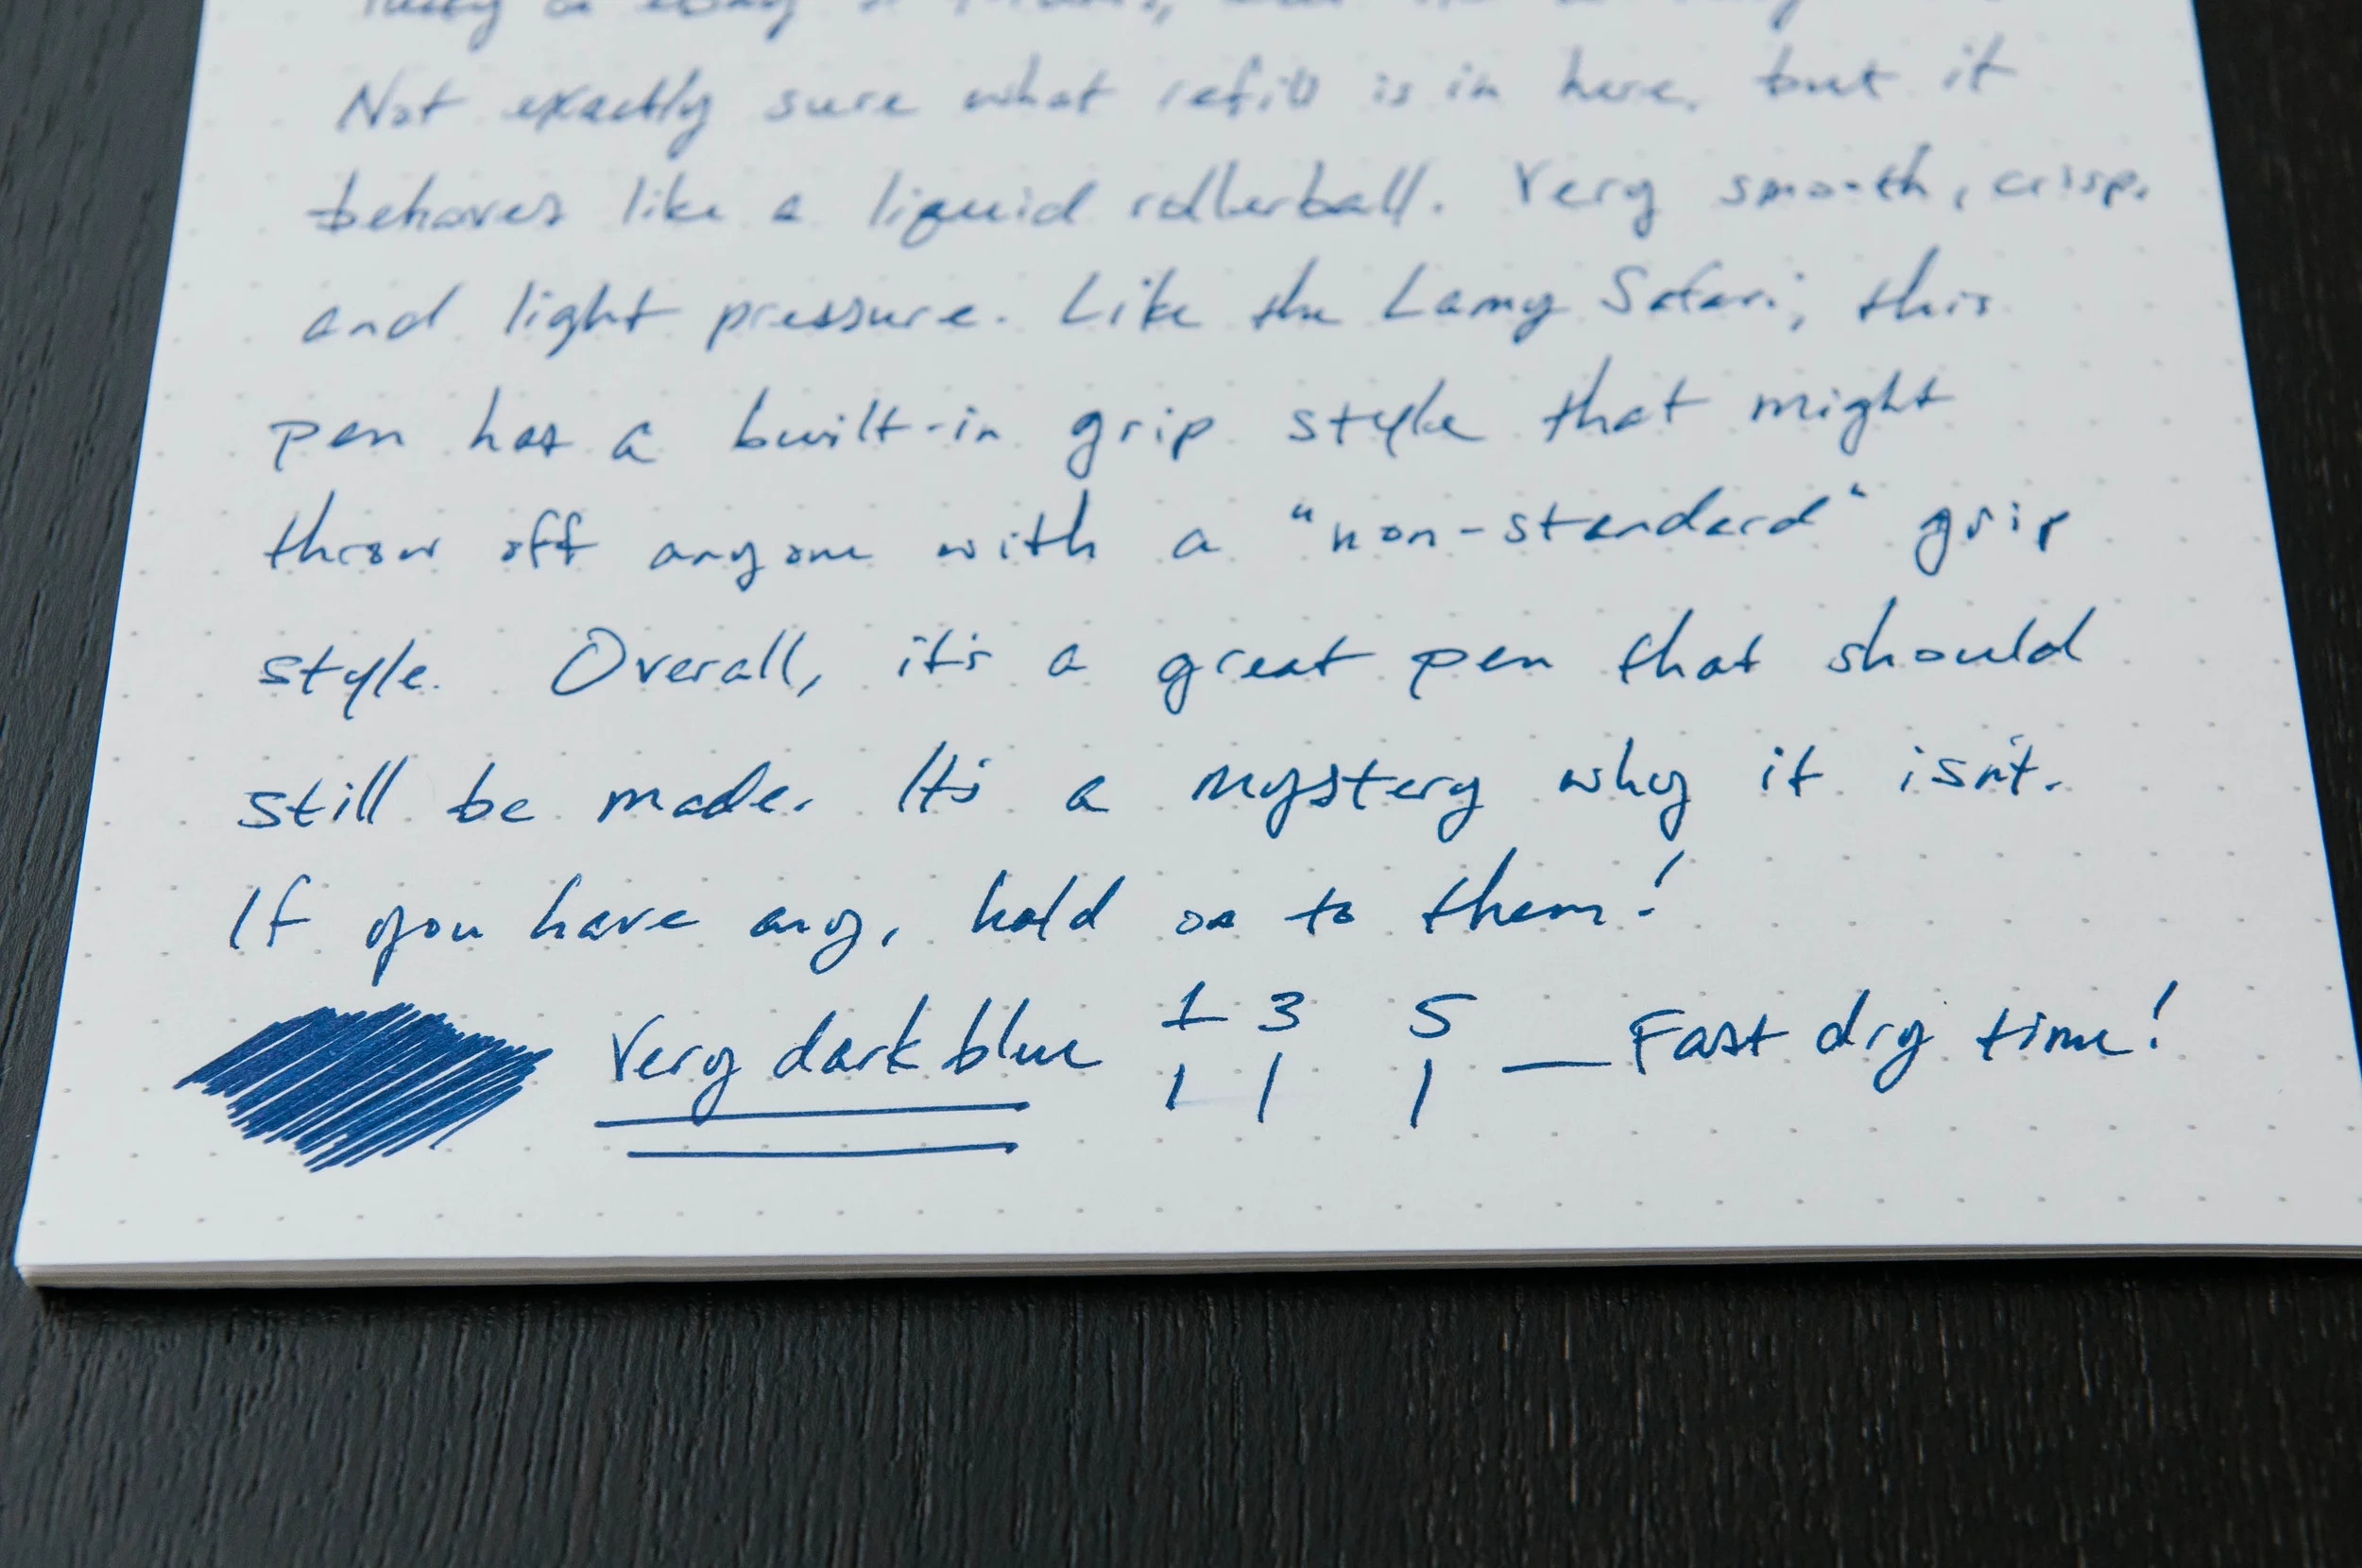 Not exactly sure what refill is in here, but it
behaves like a liquid rollerball. Very smooth, crisp,
and light pressure. Like the Lamy Safari, this
pen has a built-in grip style that might
throw off anyone with a "non-standard" grip
style. Overall, it's a great pen that should
still be made. It's a mystery why it isn't.
If you have any, hold on to them!
Very dark blue 1 3 5 — Fast dry time!